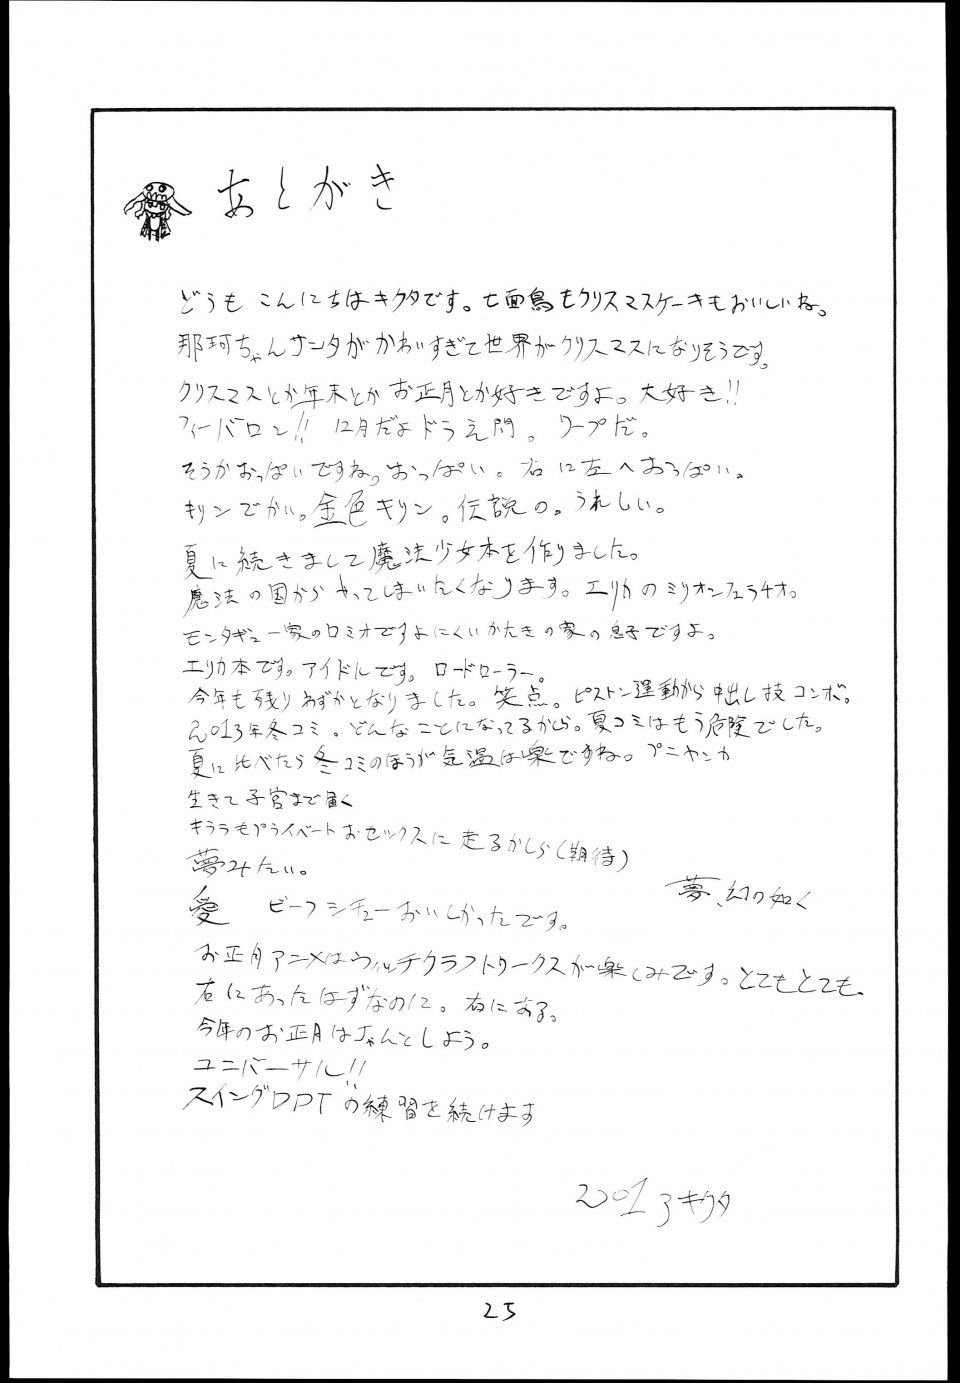 あとがき
どうも こんにちはキクタです。七面鳥もクリスマスケーキもおいしいね。
那珂ちゃんサンタがかわいすぎて世界がクリスマスになりそうです。
クリスマスとか年末とか お正月とか好きですよ。大好き!!
フィーバロン!! 12月だよドラえ問。ワープだ。
そうかおっぱいですね。おっぱい。右に左へおっぱい。
キリンでかい。金色キリン。伝説の。うれしい。
夏に続きまして魔法少女本を作りました。
魔法の国からやってしまいたくなります。エリカのミリオンフェラチオ。
モンタギュー家のロミオですよにくいかたきの家の息子ですよ。
エリカ本です。アイドルです。ロードローラー。
今年も残りわずかとなりました。笑点。ピストン運動から中出し技コンボ。
2013年冬コミ。どんなことになってるかしら。夏コミはもう危険でした。
夏に比べたら冬コミのほうが気温は楽ですね。プニャンカ
生きて子宮まで届く
キララもプライベートおセックスに走るかしら(期待)
夢みたい。
夢、幻の如く
愛 ビーフシチューおいしかったです。
お正月アニメはウィッチクラフトワークスが楽しみです。とてもとても、
右にあったはずなのに。右にある。
今年のお正月はちゃんとしよう。
ユニバーサル!!
スイングDDTの練習を続けます
2013キクタ
25